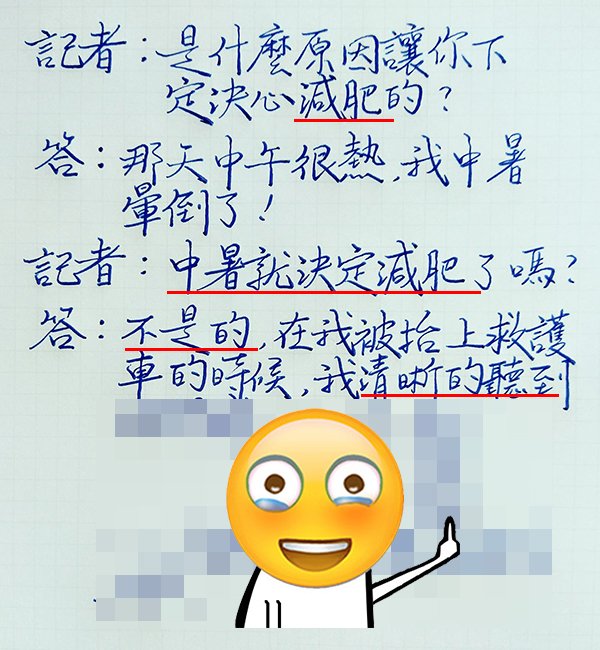 記者：是什麼原因讓你下
定決心減肥的？
答：那天中午很熱，我中暑
暈倒了！
記者：中暑就決定減肥了嗎？
答：不是的，在我被抬上救護
車的時候，我清晰的聽到